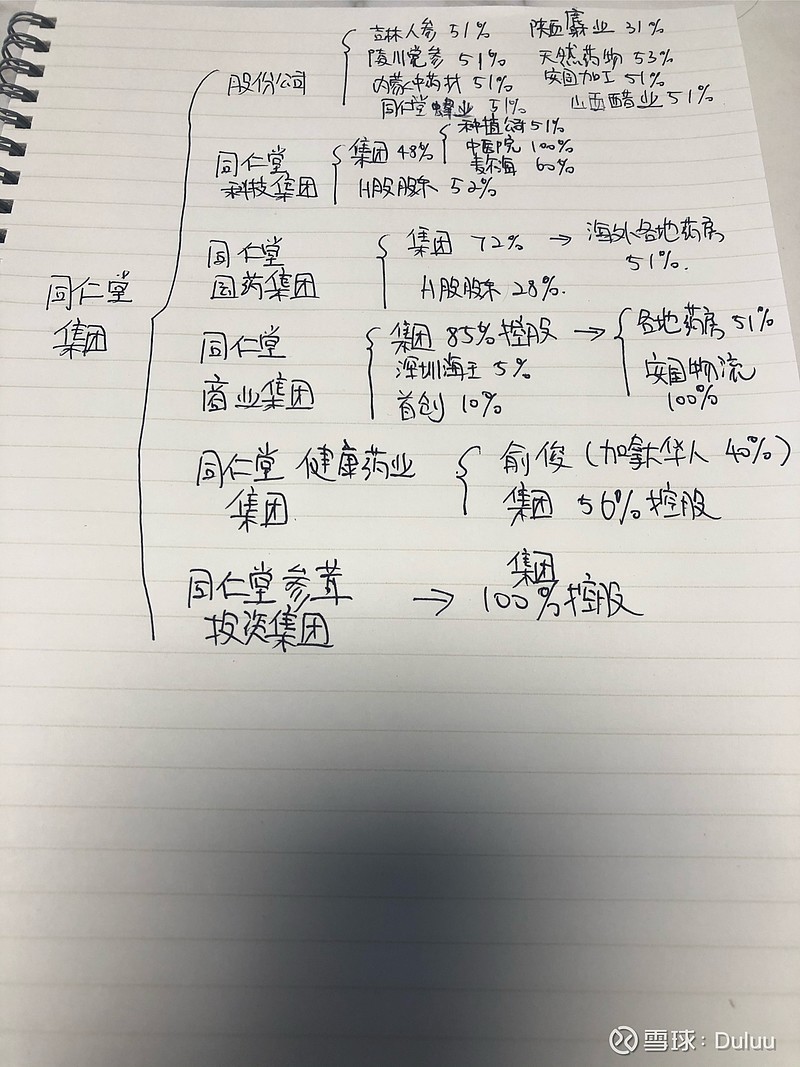 同仁堂
集团
股份公司
吉林人参 51% 陕西麝业 31%
陵川党参 51% 天然药物 53%
内蒙中药材 51% 安国加工 51%
同仁堂蜂业 51% 山西醋业 51%
同仁堂
科技集团
集团 48%
种植公司 51%
中医院 100%
麦尔海 60%
H股股东 52%
同仁堂
国药集团
集团 72% → 海外各地药房
51%.
H股股东 28%.
同仁堂
商业集团
集团 85%控股 → 各地药房 51%
深圳海王 5%
首创 10%
安国物流
100%
同仁堂 健康药业
集团
俞俊(加拿大华人 40%)
集团 56%控股
同仁堂参茸
投资集团
→ 集团
100%控股
雪球:Duluu